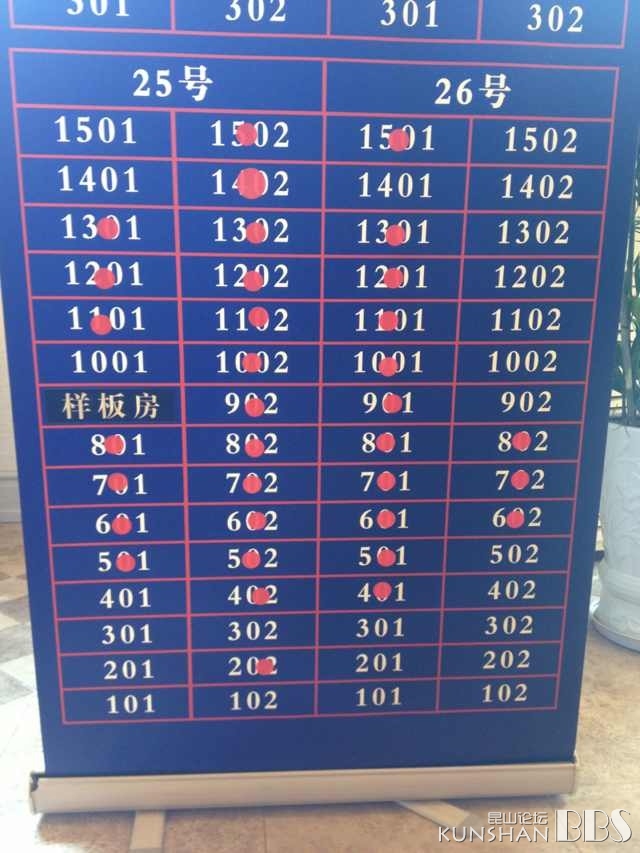 301 302 301 302
25号 26号
1501 1502 1501 1502
1401 1402 1401 1402
1301 1302 1301 1302
1201 1202 1201 1202
1101 1102 1101 1102
1001 1002 1001 1002
样板房 902 901 902
801 802 801 802
701 702 701 702
601 602 601 602
501 502 501 502
401 402 401 402
301 302 301 302
201 202 201 202
101 102 101 102
昆山论坛
KUNSHAN BBS